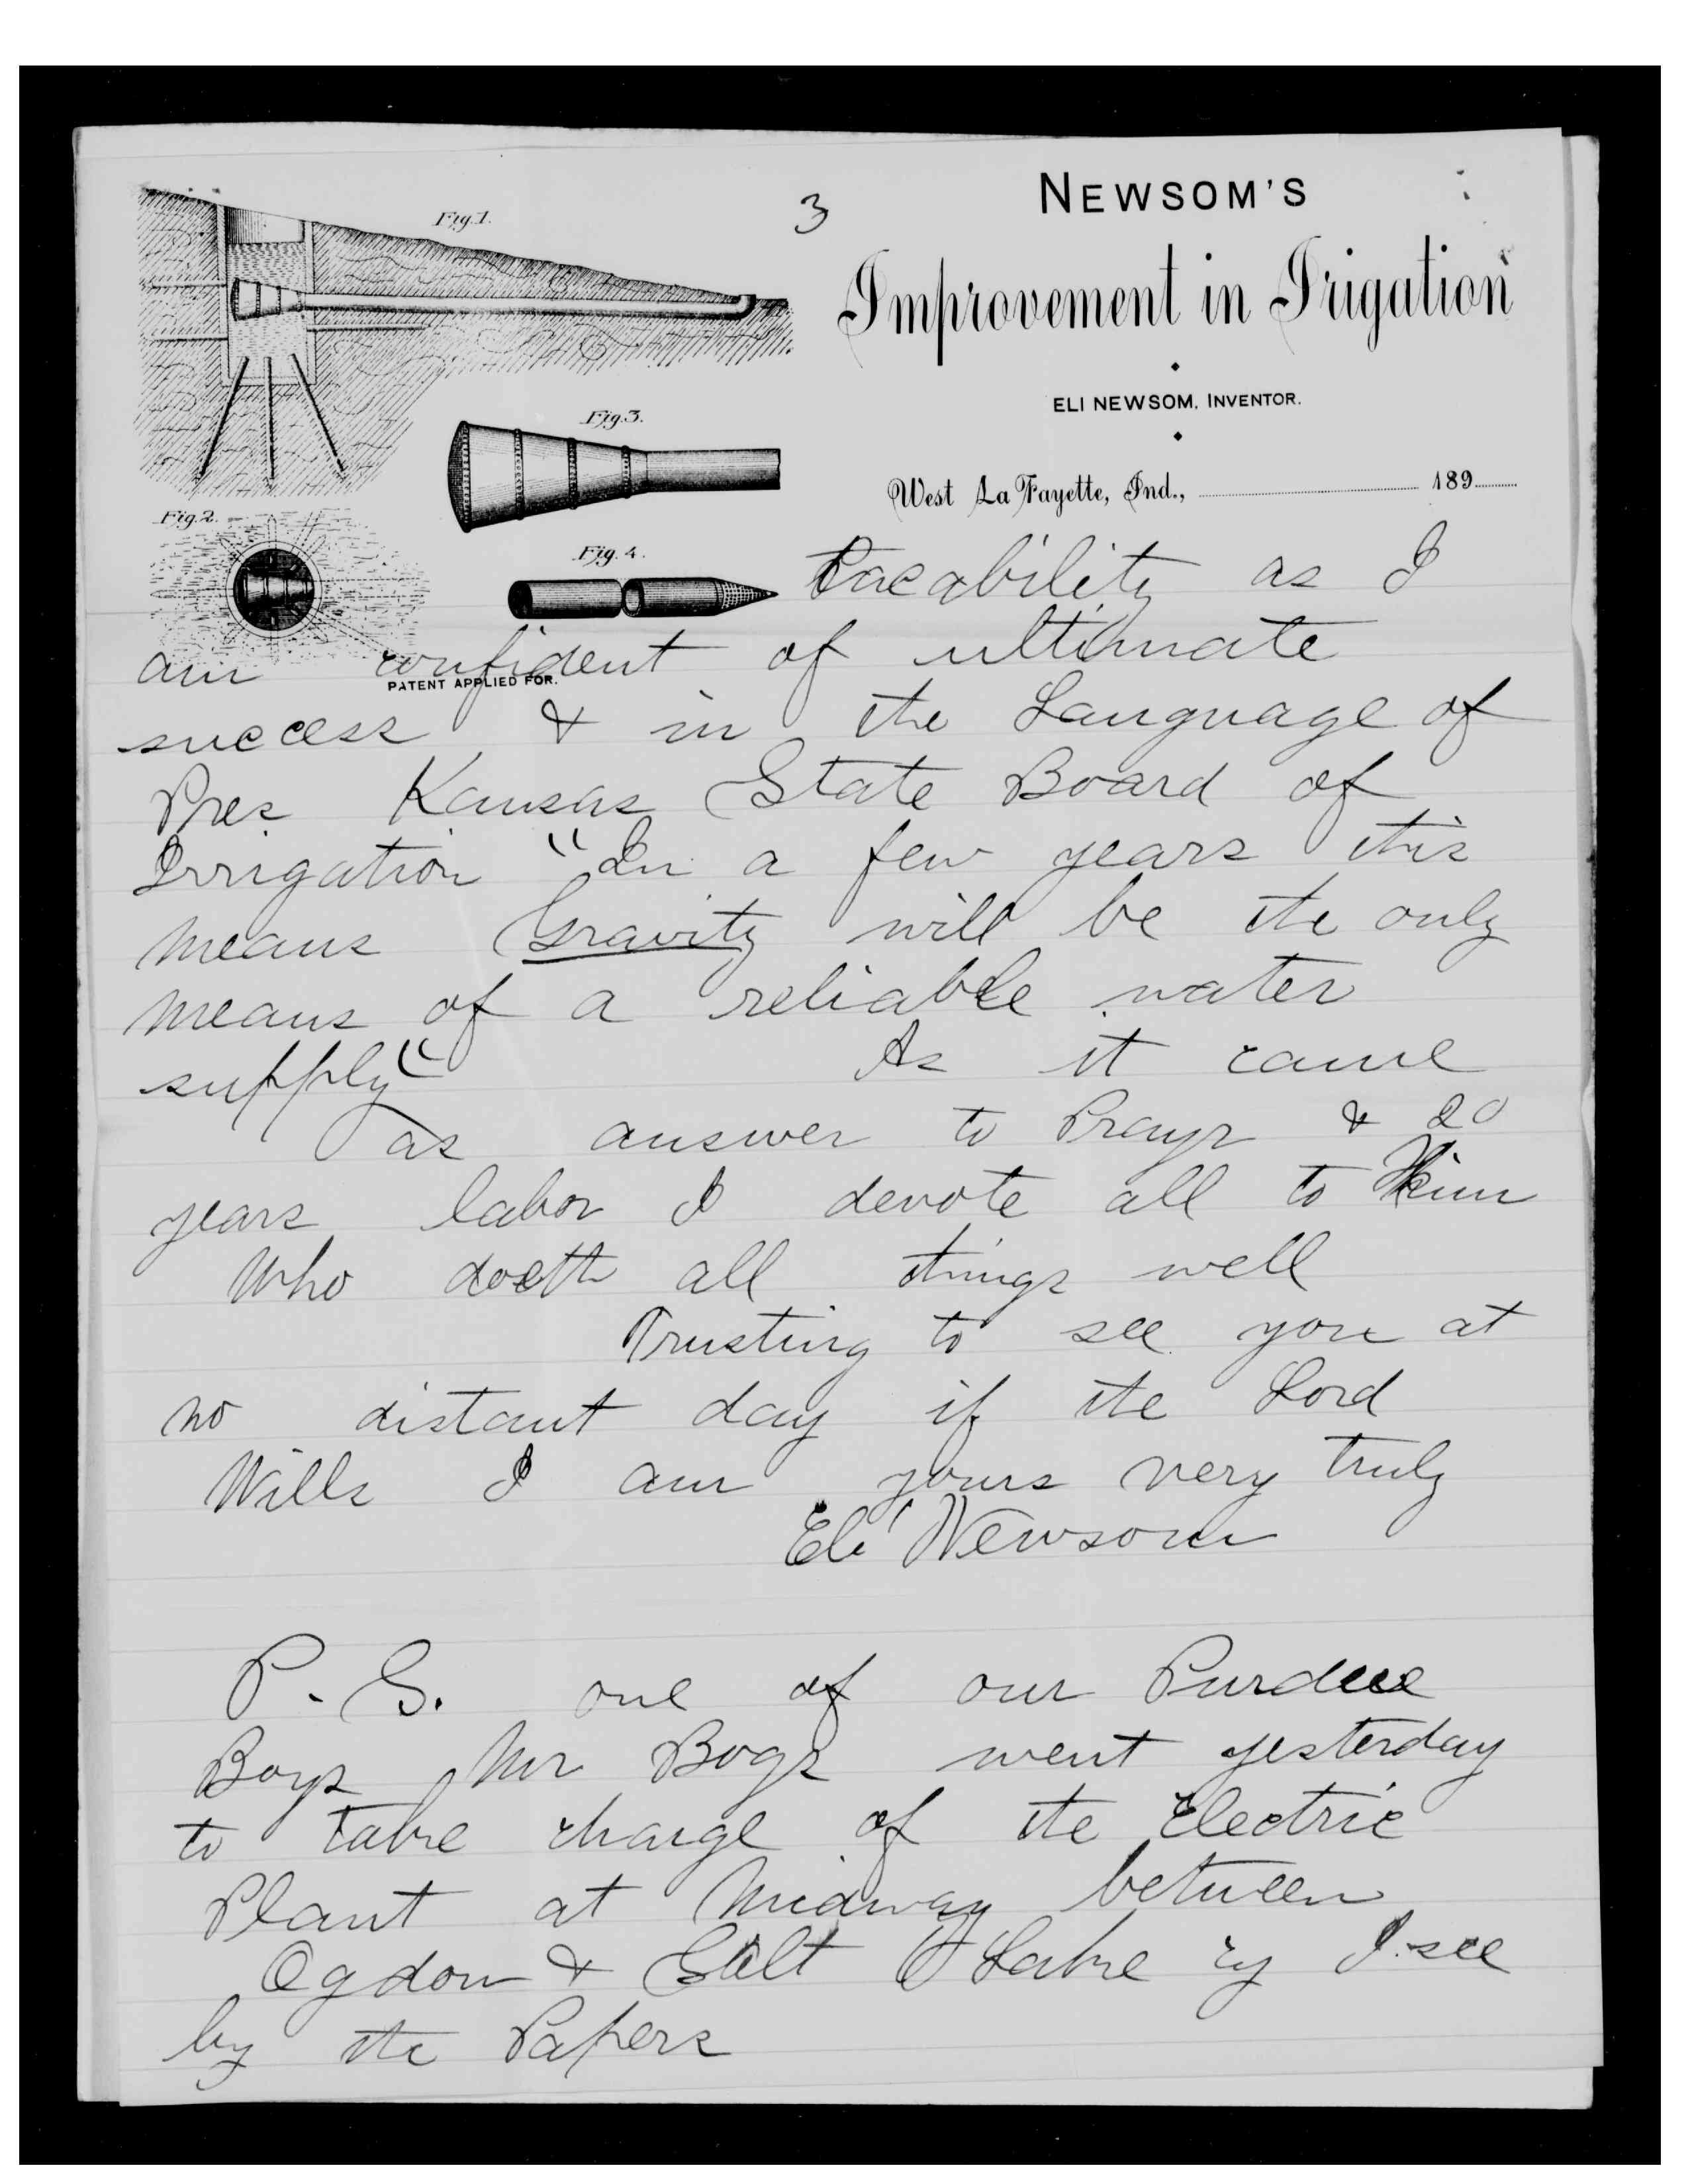 3
NEWSOM'S
Improvement in Irigation
ELI NEWSOM, INVENTOR.
West La Fayette, Ind., 189
Fig.1.
Fig.3.
Fig.2.
Fig. 4.
PATENT APPLIED FOR.
as I
am confident of ultimate
success & in the Language of
Pres Kansas State Board of
Irrigation "In a few years this
means Gravity will be the only
means of a reliable water
supply"
As it came
as answer to Prayr & 20
years labor I devote all to Him
Who doeth all things well
Trusting to see you at
no distant day if the Lord
Wills I am yours very truly
Eli Newsom
P. S. one of our Purdue
Boys Mr Bogs went yesterday
to take charge of the Electric
Plant at Midway between
Ogdon & Salt Lake cy I see
by the Papers